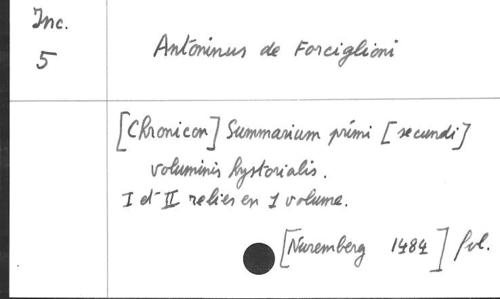 Inc.
5
Antoninus de Forciglioni
[Chronicon] Summarium primi [secundi]
voluminis hystorialis.
I et II relies en 1 volume.
[Nuremberg 1484] fol.